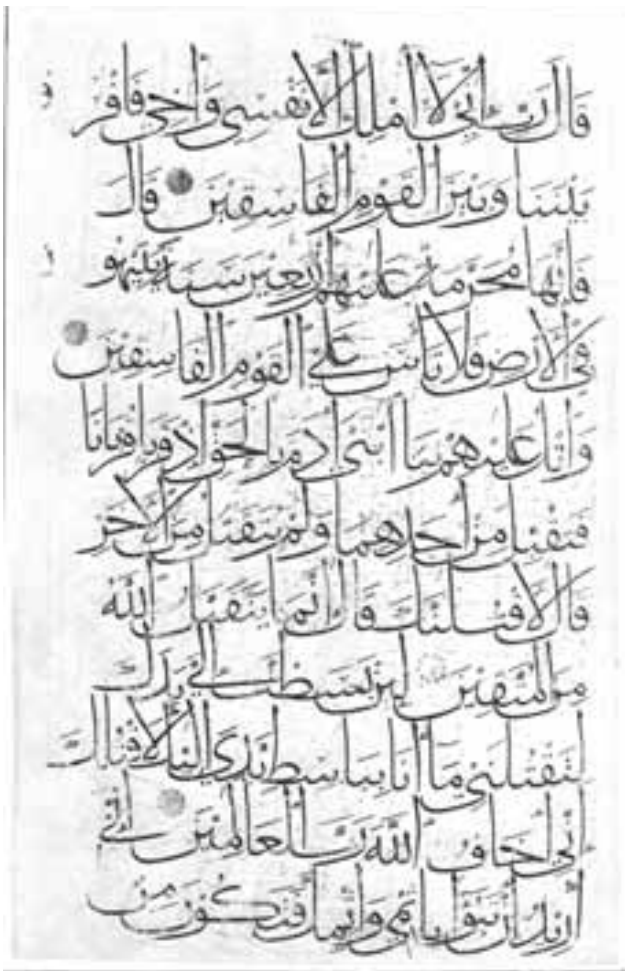 قَالَ رَبِّ إِنِّي لَا أَمْلِكُ إِلَّا نَفْسِي وَأَخِي فَافْرُ
بَيْنَنَا وَبَيْنَ الْقَوْمِ الْفَاسِقِينَ قَالَ
فَإِنَّهَا مُحَرَّمَةٌ عَلَيْهِمْ أَرْبَعِينَ سَنَةً يَتِيهُو
فِي الْأَرْضِ فَلَا تَأْسَ عَلَى الْقَوْمِ الْفَاسِقِينَ
وَاتْلُ عَلَيْهِمْ نَبَأَ ابْنَيْ آدَمَ بِالْحَقِّ إِذْ قَرَّبَا قُرْبَانًا
فَتُقُبِّلَ مِنْ أَحَدِهِمَا وَلَمْ يُتَقَبَّلْ مِنَ الْآخَرِ
قَالَ لَأَقْتُلَنَّكَ قَالَ إِنَّمَا يَتَقَبَّلُ اللَّهُ
مِنَ الْمُتَّقِينَ لَئِنْ بَسَطْتَ إِلَيَّ يَدَكَ
لِتَقْتُلَنِي مَا أَنَا بِبَاسِطٍ يَدِيَ إِلَيْكَ لِأَقْتُلَكَ
إِنِّي أَخَافُ اللَّهَ رَبَّ الْعَالَمِينَ إِنِّي
أُرِيدُ أَنْ تَبُوءَ بِإِثْمِي وَإِثْمِكَ فَتَكُونَ مِنْ